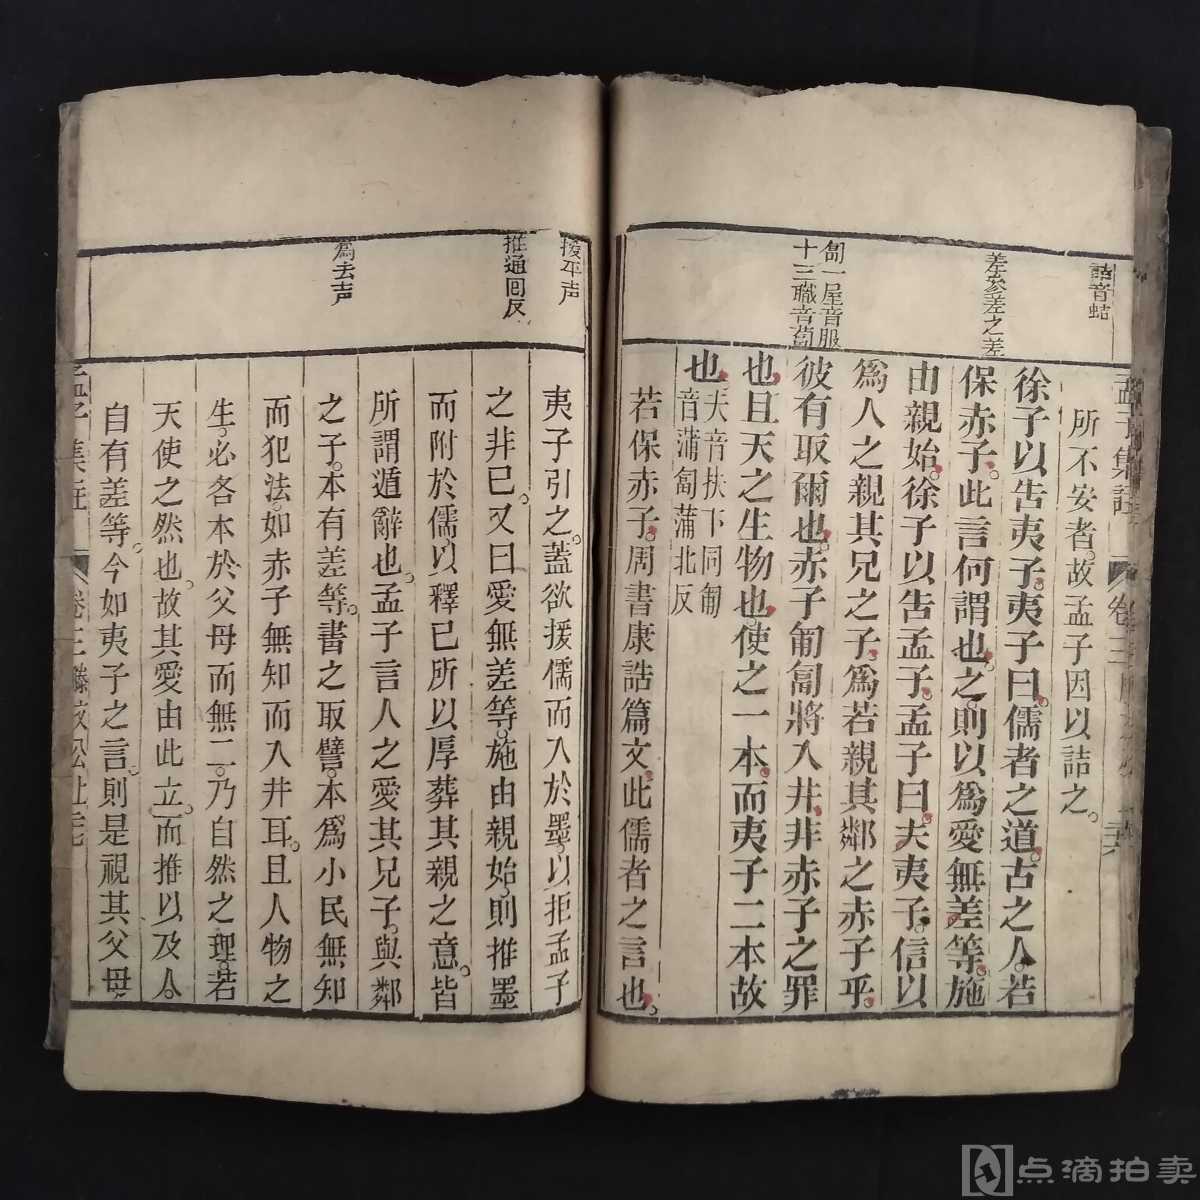 詰音蛣
差參差之差
匐一屋音服
十三職音蔔
孟子集註
卷三
所不安者。故孟子因以詰之。
徐子以告夷子。夷子曰。儒者之道。古之人。若
保赤子。此言何謂也。之。則以爲愛無差等。施
由親始。徐子以告孟子。孟子曰。夫夷子。信以
爲人之親其兄之子。爲若親其鄰之赤子乎。
彼有取爾也。赤子匍匐將入井。非赤子之罪
也。且天之生物也。使之一本。而夷子二本故
也。夫音扶下同匍
音蒲匐蒲北反
若保赤子。周書康誥篇文。此儒者之言也。
援平声
推通囘反
爲去声
夷子引之。蓋欲援儒而入於墨。以拒孟子
之非已。又曰愛無差等。施由親始。則推墨
而附於儒。以釋已所以厚葬其親之意。皆
所謂遁辭也。孟子言人之愛其兄子。與鄰
之子。本有差等。書之取譬。本爲小民無知
而犯法。如赤子無知而入井耳。且人物之
生。必各本於父母而無二。乃自然之理。若
天使之然也。故其愛由此立。而推以及人。
自有差等。今如夷子之言。則是視其父母
孟子集註
卷三滕文公上
点滴拍卖